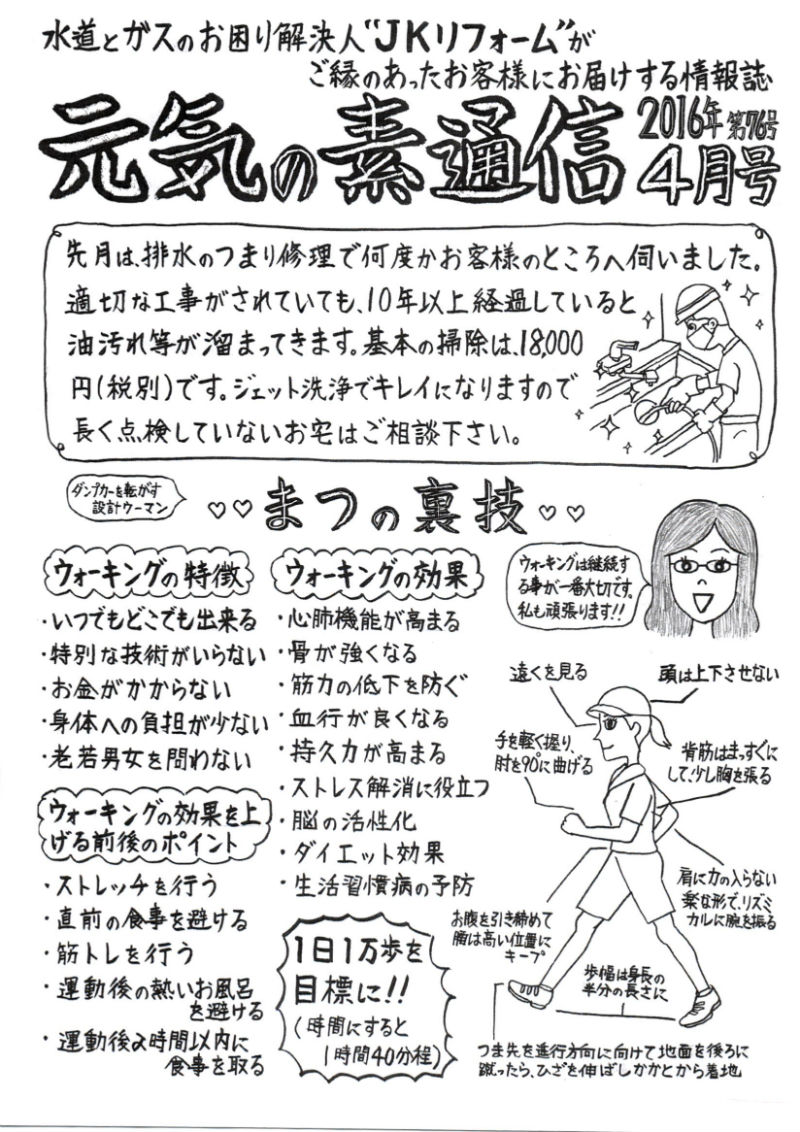 水道とガスのお困り解決人"JKリフォーム"が
ご縁のあったお客様にお届けする情報誌
元気の素通信
2016年 第76号
4月号
先月は、排水のつまり修理で何度かお客様のところへ伺いました。
適切な工事がされていても、10年以上経過していると
油汚れ等が溜まってきます。基本の掃除は、18,000
円(税別)です。ジェット洗浄でキレイになりますので
長く点検していないお宅はご相談下さい。
ダンプカーを転がす
設計ウーマン
♡♡まつの裏技♡♡
ウォーキングの特徴
・いつでもどこでも出来る
・特別な技術がいらない
・お金がかからない
・身体への負担が少ない
・老若男女を問わない
ウォーキングの効果を上
げる前後のポイント
・ストレッチを行う
・直前の食事を避ける
・筋トレを行う
・運動後の熱いお風呂
を避ける
・運動後2時間以内に
食事を取る
ウォーキングの効果
・心肺機能が高まる
・骨が強くなる
・筋力の低下を防ぐ
・血行が良くなる
・持久力が高まる
・ストレス解消に役立つ
・脳の活性化
・ダイエット効果
・生活習慣病の予防
1日1万歩を
目標に!!
(時間にすると
1時間40分程)
ウォーキングは継続す
る事が一番大切です。
私も頑張ります!!
遠くを見る
頭は上下させない
手を軽く握り、
肘を90°に曲げる
背筋はまっすぐに
して、少し胸を張る
肩に力の入らない
楽な形で、リズミ
カルに腕を振る
お腹を引き締めて
腰は高い位置に
キープ
歩幅は身長の
半分の長さに
つま先を進行方向に向けて地面を後ろに
蹴ったら、ひざを伸ばしかかとから着地